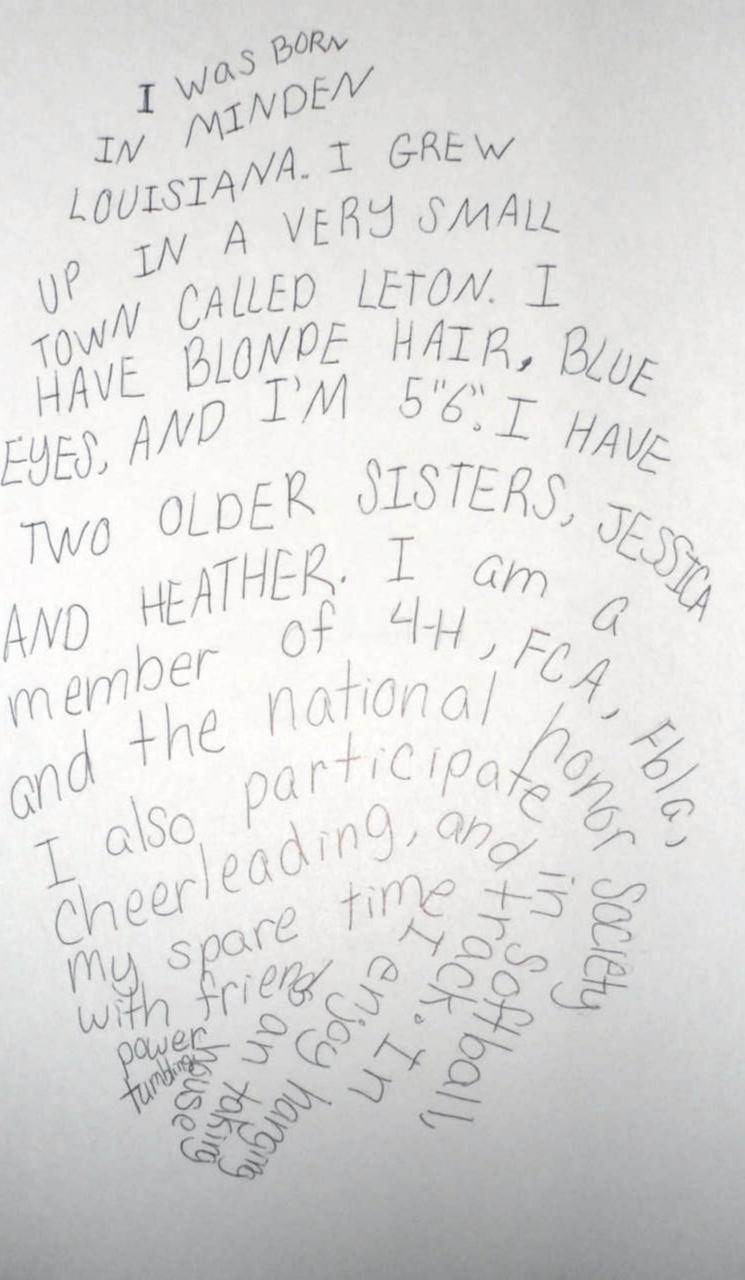 I was BORN
IN MINDEN
LOUISIANA. I GREW
UP IN A VERY SMALL
TOWN CALLED LETON. I
HAVE BLONDE HAIR, BLUE
EYES, AND I'M 5"6". I HAVE
TWO OLDER SISTERS, JESSICA
AND HEATHER. I am a
member of 4-H, FCA, Fbla,
and the national honor Society
I also participate in Softball,
cheerleading, and track. In
my spare time I enjoy hanging
with friends an taking
power house
tumbling